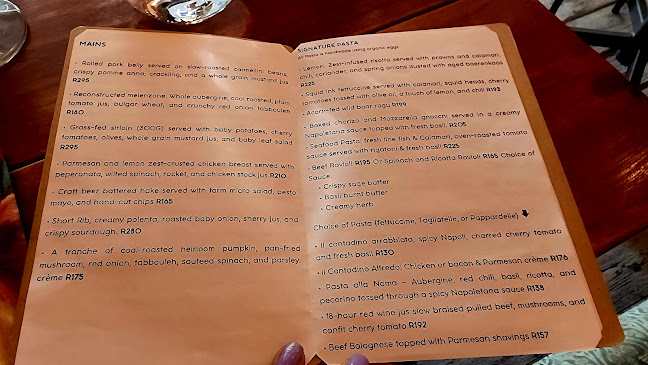 MAINS
• Rolled pork belly served on slow-roasted cannellini beans,
crispy pomme anna, crackling, and a whole grain mustard jus
R295
• Reconstructed melenzane: Whole aubergine, coal roasted, plum
tomato jus, bulgar wheat, and crunchy red onion tabbouleh
R180
• Grass-fed sirloin (300G) served with baby potatoes, cherry
tomatoes, olives, whole grain mustard jus, and baby leaf salad
R295
• Parmesan and lemon zest-crusted chicken breast served with
peperonata, wilted spinach, rocket, and chicken stock jus R210
• Craft beer battered hake served with farm micro salad, pesto
mayo, and hand-cut chips R165
• Short Rib, creamy polenta, roasted baby onion, sherry jus, and
crispy sourdough. R280
• A tranche of coal-roasted heirloom pumpkin, pan-fried
mushroom, red onion, tabbouleh, sauteed spinach, and parsley
crème R175
SIGNATURE PASTA
All Pasta is handmade using organic eggs
• Lemon, Zest-infused risotto served with prawns and calamari,
chili, coriander, and spring onions dusted with aged boerenkaas
R225
• Squid ink fettuccine served with calamari, squid heads, cherry
tomatoes tossed with olive oil, a touch of lemon, and chili R193
• Acorn-fed wild boar ragu R199
• Baked chorizo and Mozzarella gnocchi served in a creamy
Napoletana sauce topped with fresh basil R205
• Seafood Pasta: fresh line fish & Calamari, oven-roasted tomato
sauce served with rigatoni & fresh basil R225
• Beef Ravioli R195 Or Spinach and Ricotta Ravioli R165 Choice of
Sauce,
• Crispy sage butter
• Basil burnt butter
• Creamy herb
Choice of Pasta (fettuccine, Tagliatelle, or Pappardelle)
• il contadino arrabbiata, spicy Napoli, charred cherry tomato
and fresh basil R130
• il Contadino Alfredo: Chicken or bacon & Parmesan crème R176
• Pasta alla Noma - Aubergine, red chili, basil, ricotta, and
pecorino tossed through a spicy Napoletana sauce R138
• 18-hour red wine jus slow braised pulled beef, mushrooms, and
confit cherry tomato R192
• Beef Bolognese topped with Parmesan shavings R157